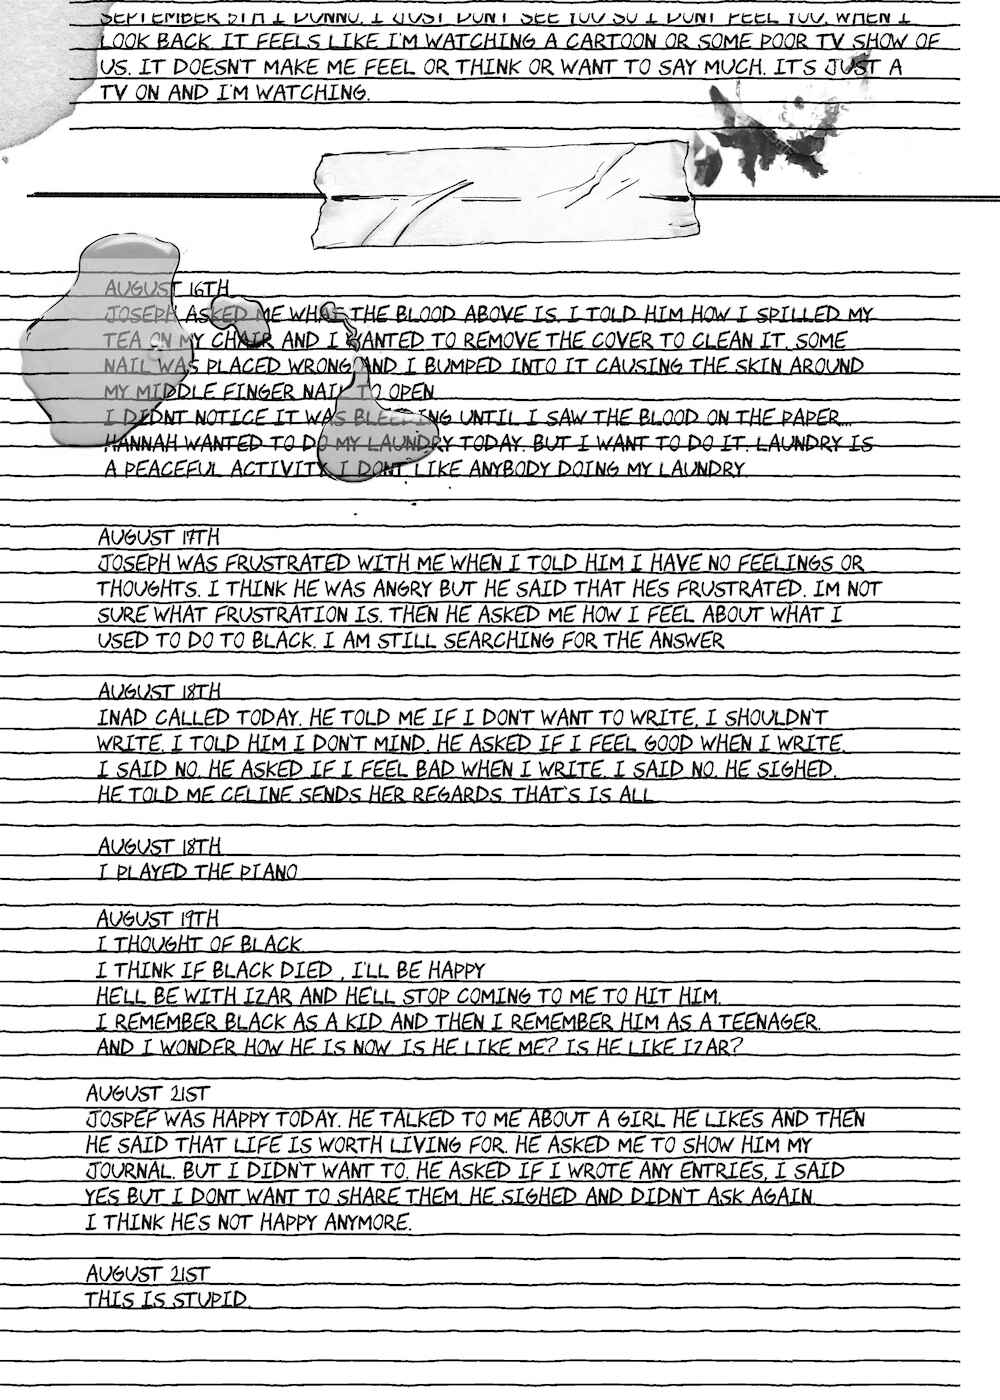 SEPTEMBER 5TH I DUNNO. I JUST DON'T SEE YOU SO I DON'T FEEL YOU. WHEN I
LOOK BACK. IT FEELS LIKE I'M WATCHING A CARTOON OR SOME POOR TV SHOW OF
US. IT DOESN'T MAKE ME FEEL OR THINK OR WANT TO SAY MUCH. IT'S JUST A
TV ON AND I'M WATCHING.
AUGUST 16TH
JOSEPH ASKED ME WHAT THE BLOOD ABOVE IS. I TOLD HIM HOW I SPILLED MY
TEA ON MY CHAIR AND I WANTED TO REMOVE THE COVER TO CLEAN IT. SOME
NAIL WAS PLACED WRONG AND I BUMPED INTO IT CAUSING THE SKIN AROUND
MY MIDDLE FINGER NAIL TO OPEN
I DIDNT NOTICE IT WAS BLEEDING UNTIL I SAW THE BLOOD ON THE PAPER...
HANNAH WANTED TO DO MY LAUNDRY TODAY. BUT I WANT TO DO IT. LAUNDRY IS
A PEACEFUL ACTIVITY. I DON'T LIKE ANYBODY DOING MY LAUNDRY
AUGUST 17TH
JOSEPH WAS FRUSTRATED WITH ME WHEN I TOLD HIM I HAVE NO FEELINGS OR
THOUGHTS. I THINK HE WAS ANGRY BUT HE SAID THAT HES FRUSTRATED. IM NOT
SURE WHAT FRUSTRATION IS. THEN HE ASKED ME HOW I FEEL ABOUT WHAT I
USED TO DO TO BLACK. I AM STILL SEARCHING FOR THE ANSWER
AUGUST 18TH
INAD CALLED TODAY. HE TOLD ME IF I DON'T WANT TO WRITE, I SHOULDN'T
WRITE. I TOLD HIM I DON'T MIND. HE ASKED IF I FEEL GOOD WHEN I WRITE.
I SAID NO. HE ASKED IF I FEEL BAD WHEN I WRITE. I SAID NO. HE SIGHED.
HE TOLD ME CELINE SENDS HER REGARDS. THAT'S IS ALL
AUGUST 18TH
I PLAYED THE PIANO
AUGUST 19TH
I THOUGHT OF BLACK
I THINK IF BLACK DIED , I'LL BE HAPPY
HE'LL BE WITH IZAR AND HE'LL STOP COMING TO ME TO HIT HIM.
I REMEMBER BLACK AS A KID AND THEN I REMEMBER HIM AS A TEENAGER.
AND I WONDER HOW HE IS NOW. IS HE LIKE ME? IS HE LIKE IZAR?
AUGUST 21ST
JOSPEF WAS HAPPY TODAY. HE TALKED TO ME ABOUT A GIRL HE LIKES AND THEN
HE SAID THAT LIFE IS WORTH LIVING FOR. HE ASKED ME TO SHOW HIM MY
JOURNAL. BUT I DIDN'T WANT TO. HE ASKED IF I WROTE ANY ENTRIES, I SAID
YES BUT I DONT WANT TO SHARE THEM. HE SIGHED AND DIDN'T ASK AGAIN.
I THINK HE'S NOT HAPPY ANYMORE.
AUGUST 21ST
THIS IS STUPID.